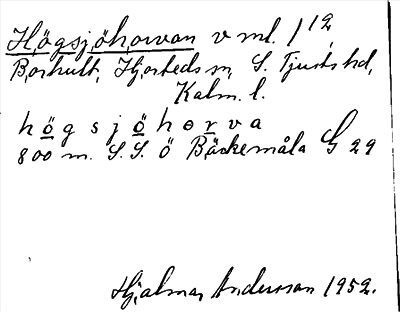 Högsjöhorvan v ml. 1/12
Borhult, Hjorteds sn, S. Tjusts hd,
Kalm. l.
högsjöhorva
800 m. S.S. ö Bäckemåla G 29
Hjalmar Andersson 1952.